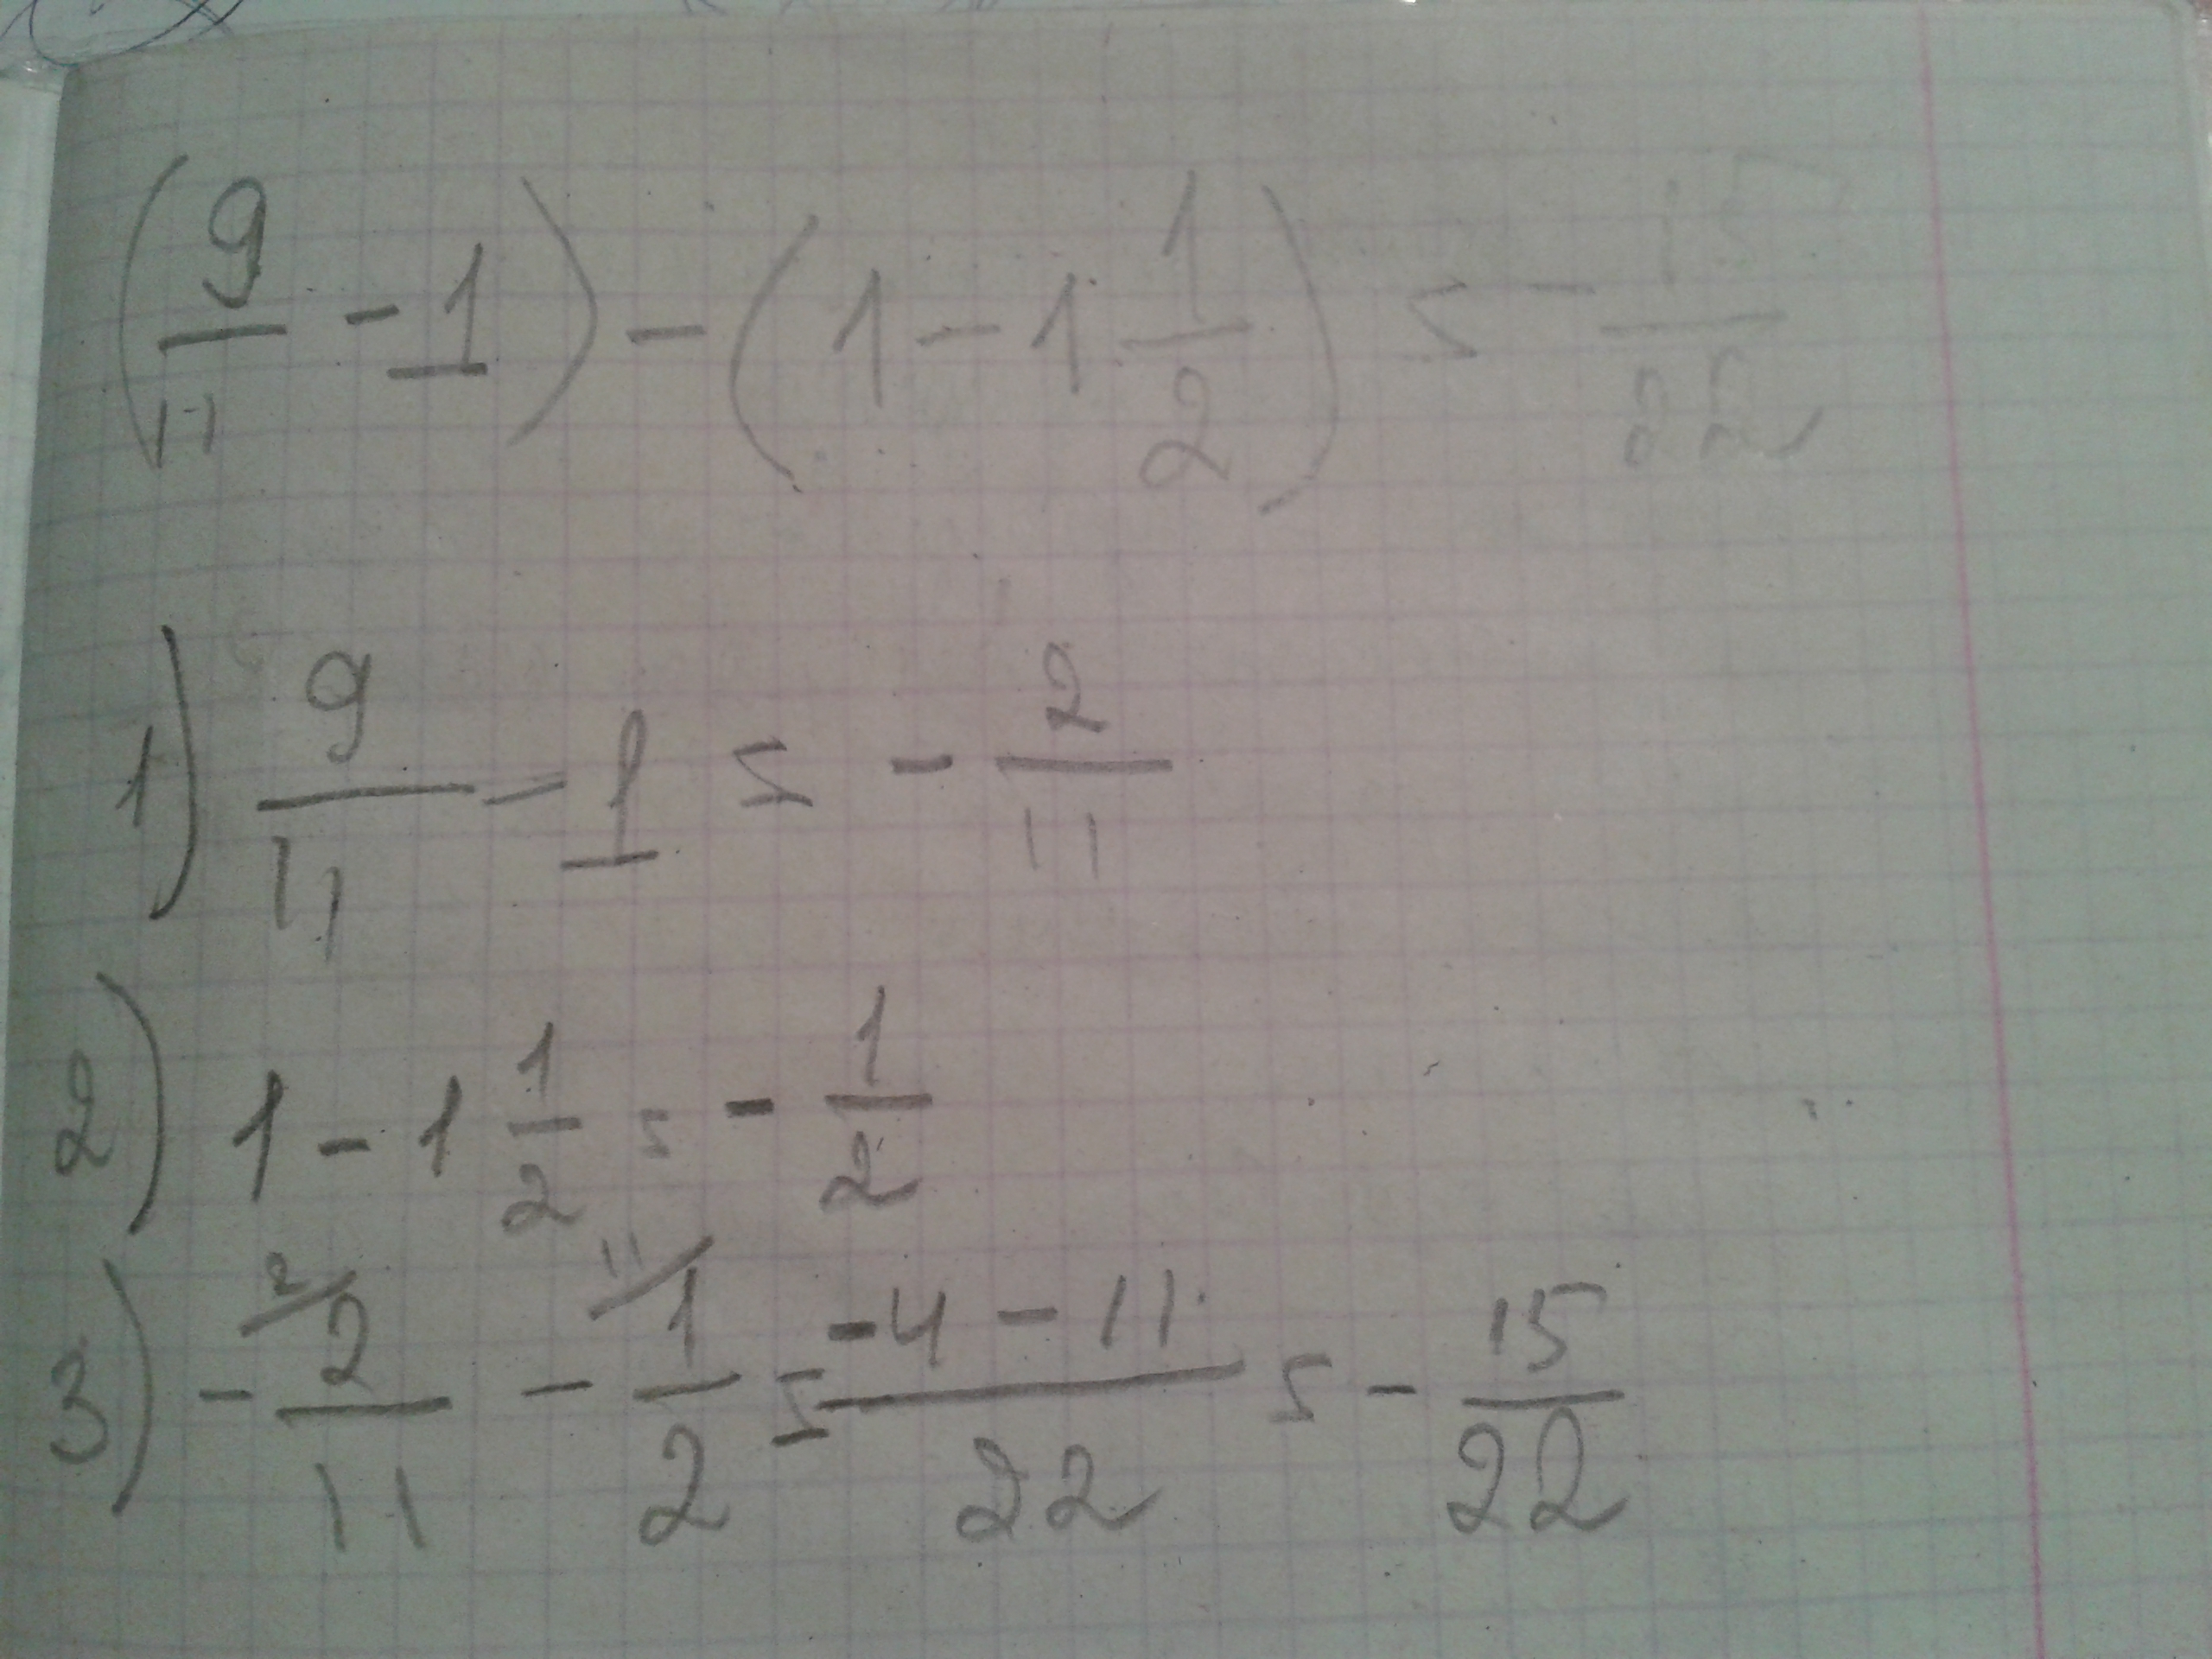 (9/11 - 1) - (1 - 1 1/2) = - 15/22
1) 9/11 - 1 = - 2/11
2) 1 - 1 1/2 = - 1/2
3) - 2/ 2/11 - 11/ 1/2 = -4 - 11/22 = - 15/22